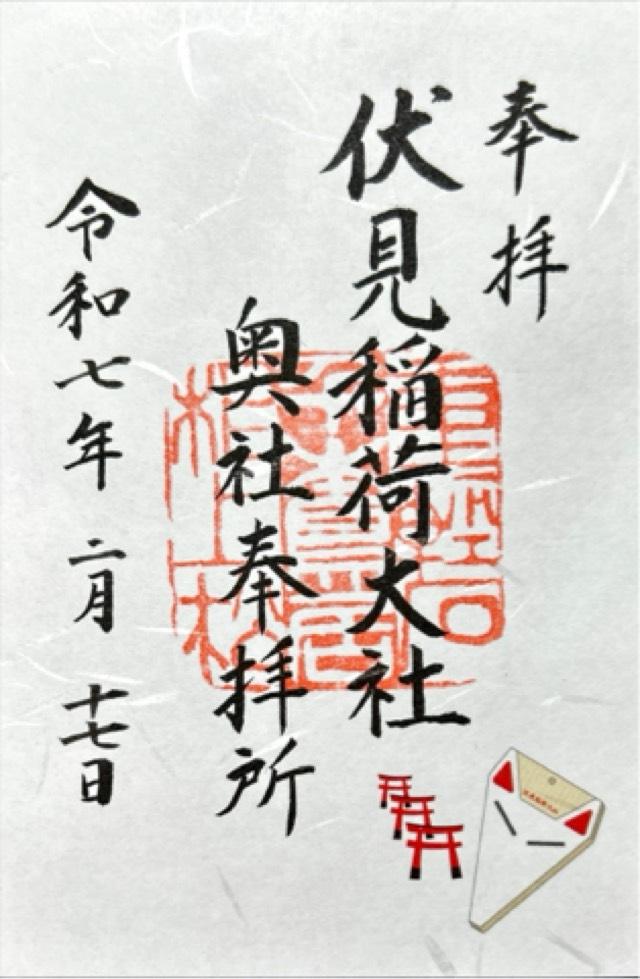 奉拝
伏見稲荷大社
奥社奉拝所
令和七年 二月 十七日